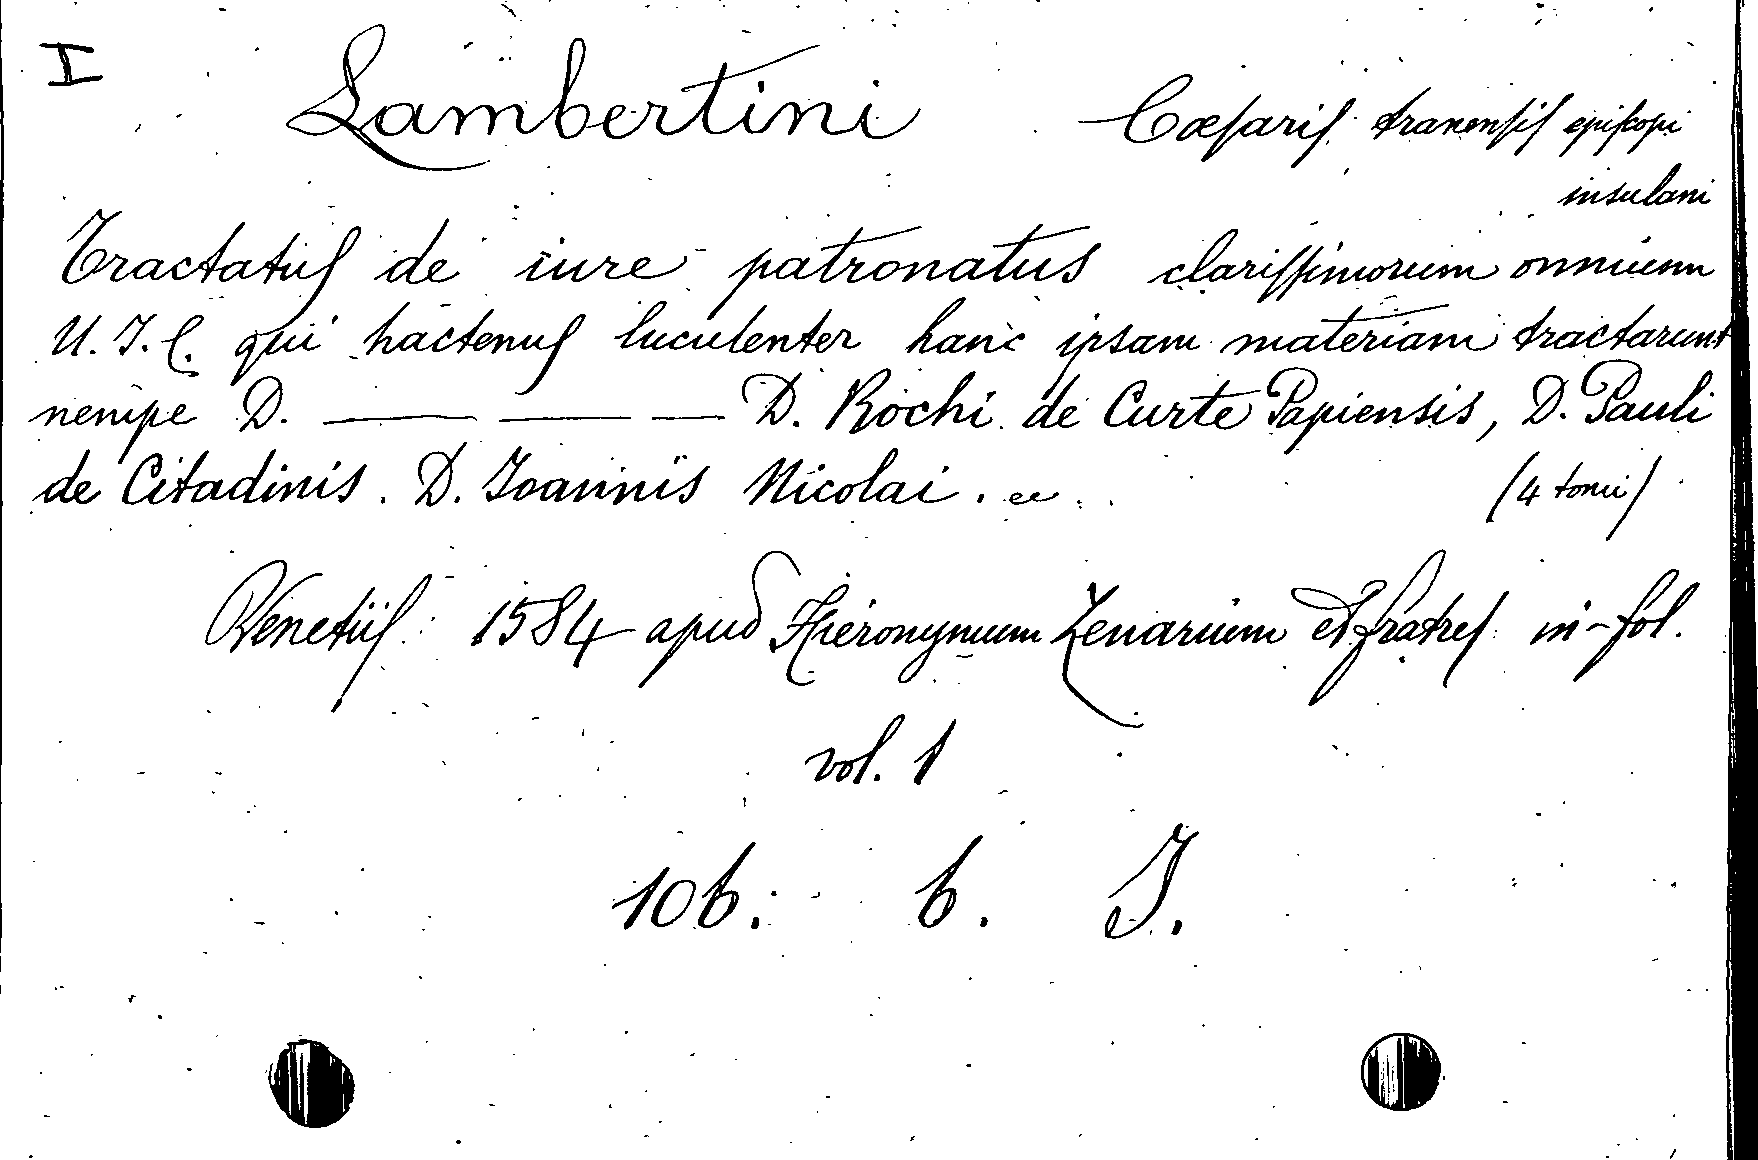 I
Lambertini Cæsaris tranensis episcopi
insulani
Tractatus de iure patronatus clarissimorum omnium
U. J. C. qui hactenus luculenter hanc ipsam materiam tractarunt
nempe D. — — — D. Rochi de Curte Papiensis, D. Pauli
de Citadinis. D. Joannis Nicolai. ee
(4 tomi)
Venetiis 1584 apud Hieronymum Zenarium et fratres in-fol.
vol. 1
106. 6. J.